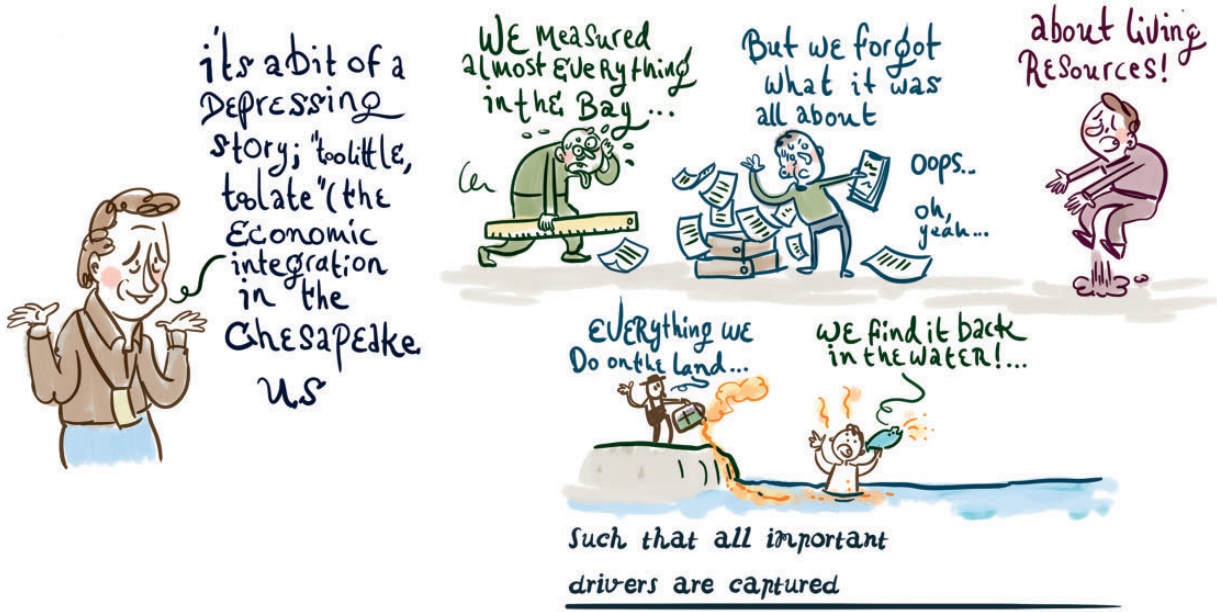 it's a bit of a
Depressing
story; "too little,
to late" (the
Economic
integration
in the
Chesapeake
US
WE measured
almost Everything
in the Bay ...
But we forgot
what it was
all about
oops...
oh,
yeah...
about living
Resources!
Everything we
Do on the Land...
we find it back
in the water!...
Such that all important
drivers are captured